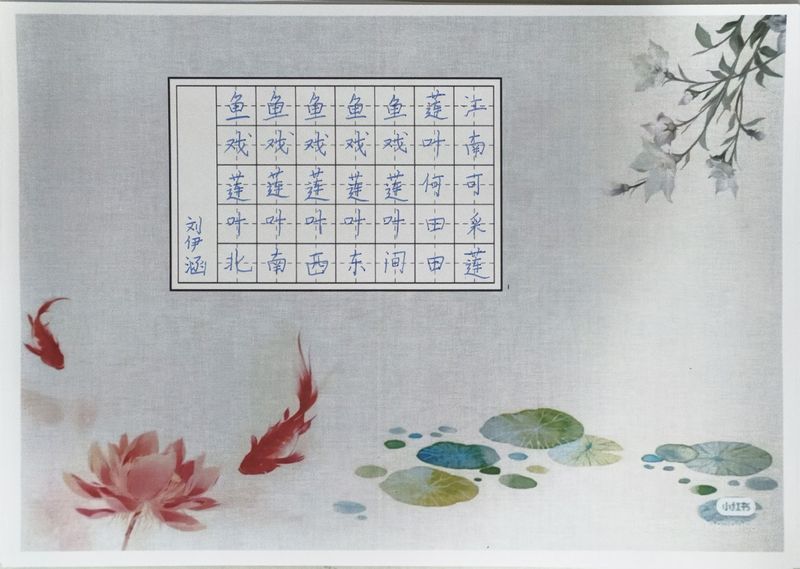 江南可采莲
莲叶何田田
鱼戏莲叶间
鱼戏莲叶东
鱼戏莲叶西
鱼戏莲叶南
鱼戏莲叶北
刘伊涵
小红书